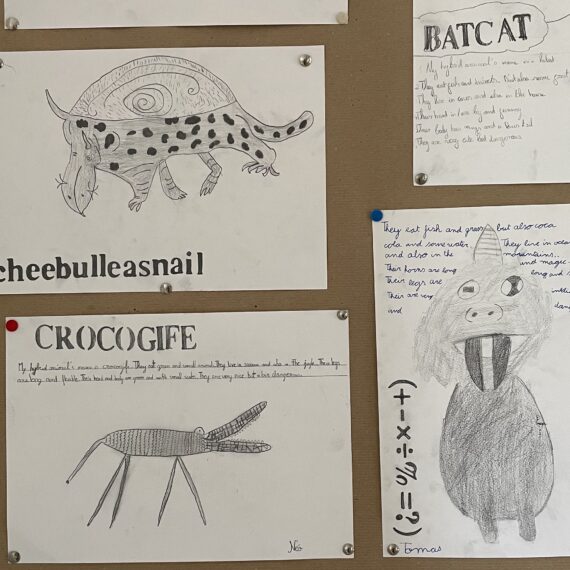 BATCAT
My hybrid animal's name is Batcat
They eat fish and insects. But also some fruit
They live in caves and also in the house
Their head is big and funny
Their body has wings and a tail
They are very cute but dangerous
cheebulleasnail
CROCOGIFE
My hybrid animal's name is crocogife. They eat grass and small animals. They live in savana and also in the jungle. Their legs
are long and flexible. Their head and body are green and with small scales. They are very nice but also dangerous.
Néo
They eat fish and grass but also coca
cola and some water. They live in ocean
and also in the mountains..
Their horns are long and magic
Their legs are long and
Their are very
and
(+-×÷%=?)
Tomas